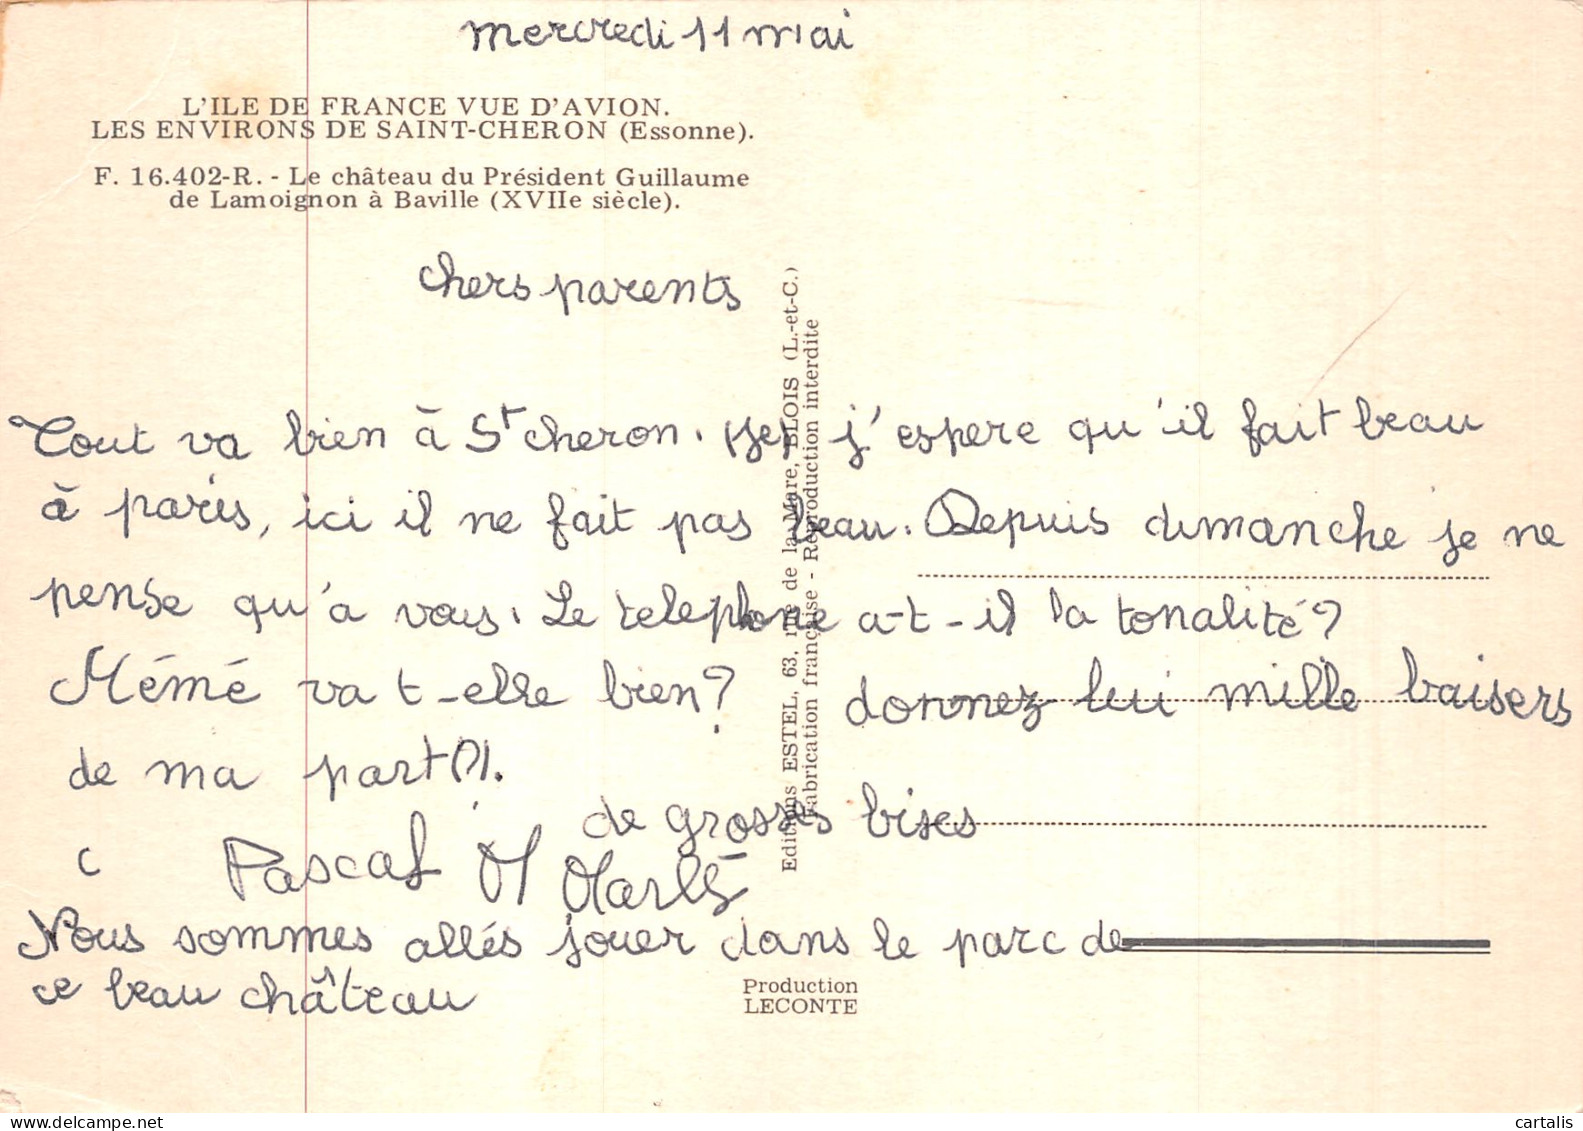 mercredi 11 mai
L'ILE DE FRANCE VUE D'AVION.
LES ENVIRONS DE SAINT-CHERON (Essonne).
F. 16.402-R. - Le château du Président Guillaume
de Lamoignon à Baville (XVIIe siècle).
chers parents
Tout va bien à St cheron. j'espere qu'il fait beau
à paris, ici il ne fait pas beau. Depuis dimanche je ne
pense qu'a vous. Le telephone a-t-il la tonalité?
Mémé va t-elle bien? donnez lui mille baisers
de ma part
de grosses bises
c Pascal
Nous sommes allés jouer dans le parc de
ce beau château
Editions ESTEL, 63, rue de la Mare, BLOIS (L.-et-C.)
Fabrication française - Reproduction interdite
Production
LECONTE
cartalis